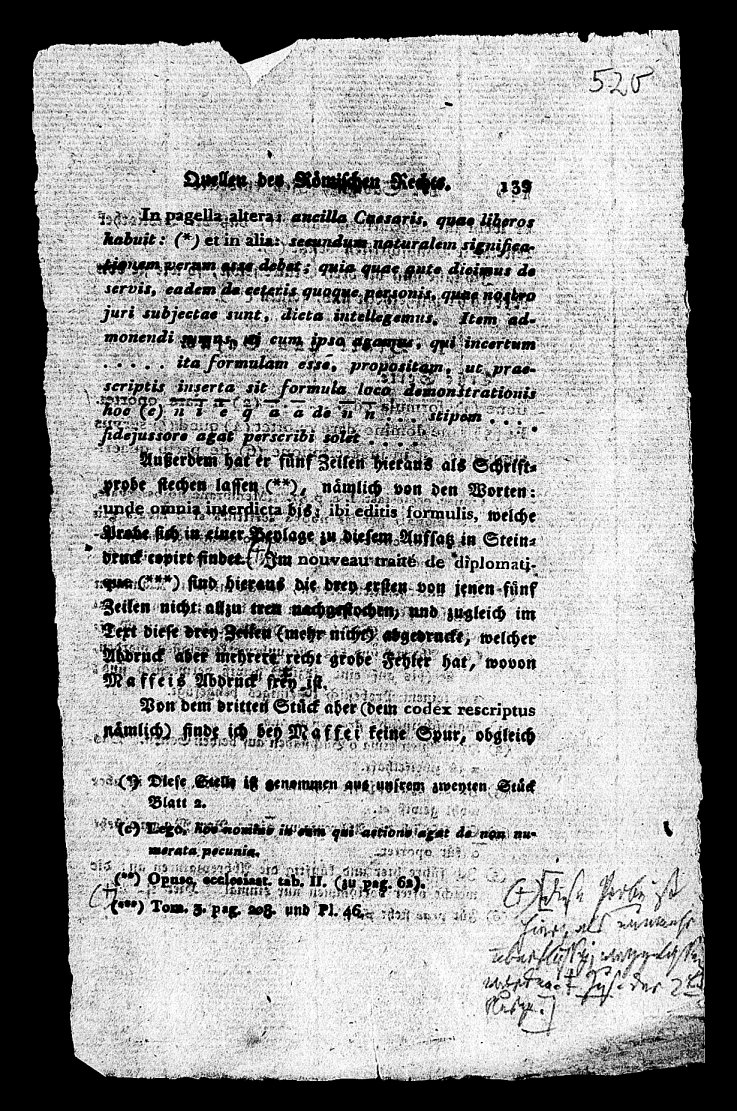 520
Quellen des Römischen Rechts. 139
In pagella altera: ancilla Caesaris, quae liberos
habuit: (*) et in alia: secundum naturalem significa-
tionem verum esse debet; quia quae ante diximus de
servis, eadem de ceteris quoque personis, quae nostro
juri subjectae sunt, dicta intellegemus. Item ad-
monendi sumus, ut cum ipso agamus, qui incertum
. . . . . ita formulam esse, propositam, ut prae-
scriptis inserta sit formula loco demonstrationis
hoc (c) n i e q a a de n n . . . stipem . . . .
fidejussore agat perscribi solet . . . . .
Außerdem hat er fünf Zeilen hieraus als Schrift-
probe stechen lassen (**), nämlich von den Worten:
unde omnia interdicta bis: ibi editis formulis, welche
Probe sich in einer Beylage zu diesem Aufsatz in Stein-
druck copirt findet. (+ Im nouveau traité de diplomati-
que (***) sind hieraus die drey ersten von jenen fünf
Zeilen nicht allzu treu nachgestochen, und zugleich im
Text diese drey Zeilen (mehr nicht) abgedruckt, welcher
Abdruck aber mehrere recht grobe Fehler hat, wovon
Maffeis Abdruck frey ist.
Von dem dritten Stück aber (dem codex rescriptus
nämlich) finde ich bey Maffei keine Spur, obgleich
(*) Diese Stelle ist genommen aus unsrem zweyten Stück
Blatt 2.
(c) Lego, hoc nomine in eum qui actione agat de non nu-
merata pecunia.
(**) Opusc. ecclesiast. tab. II. (zu pag. 62).
(+)
(***) Tom. 3. pag. 208. und Pl. 46.
(+) [diese Probe ist
hier, als nunmehr
überflüssig, weggelassen
worden. + Zus. der 2ten
Ausg.]